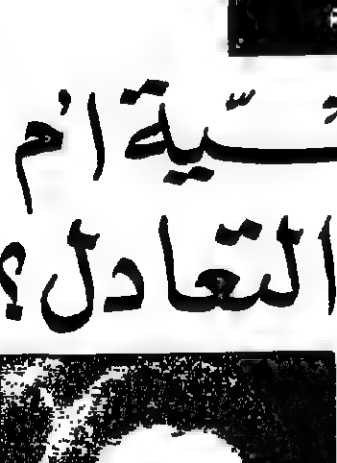 سّية أم
التعادل؟